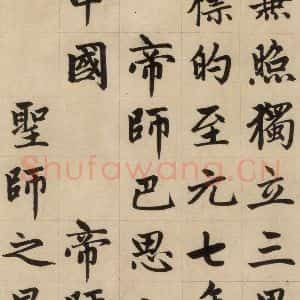 兼照獨立三界
標的至元七年
帝師巴思
中國　帝師
聖師之昆
Shufawang.CN